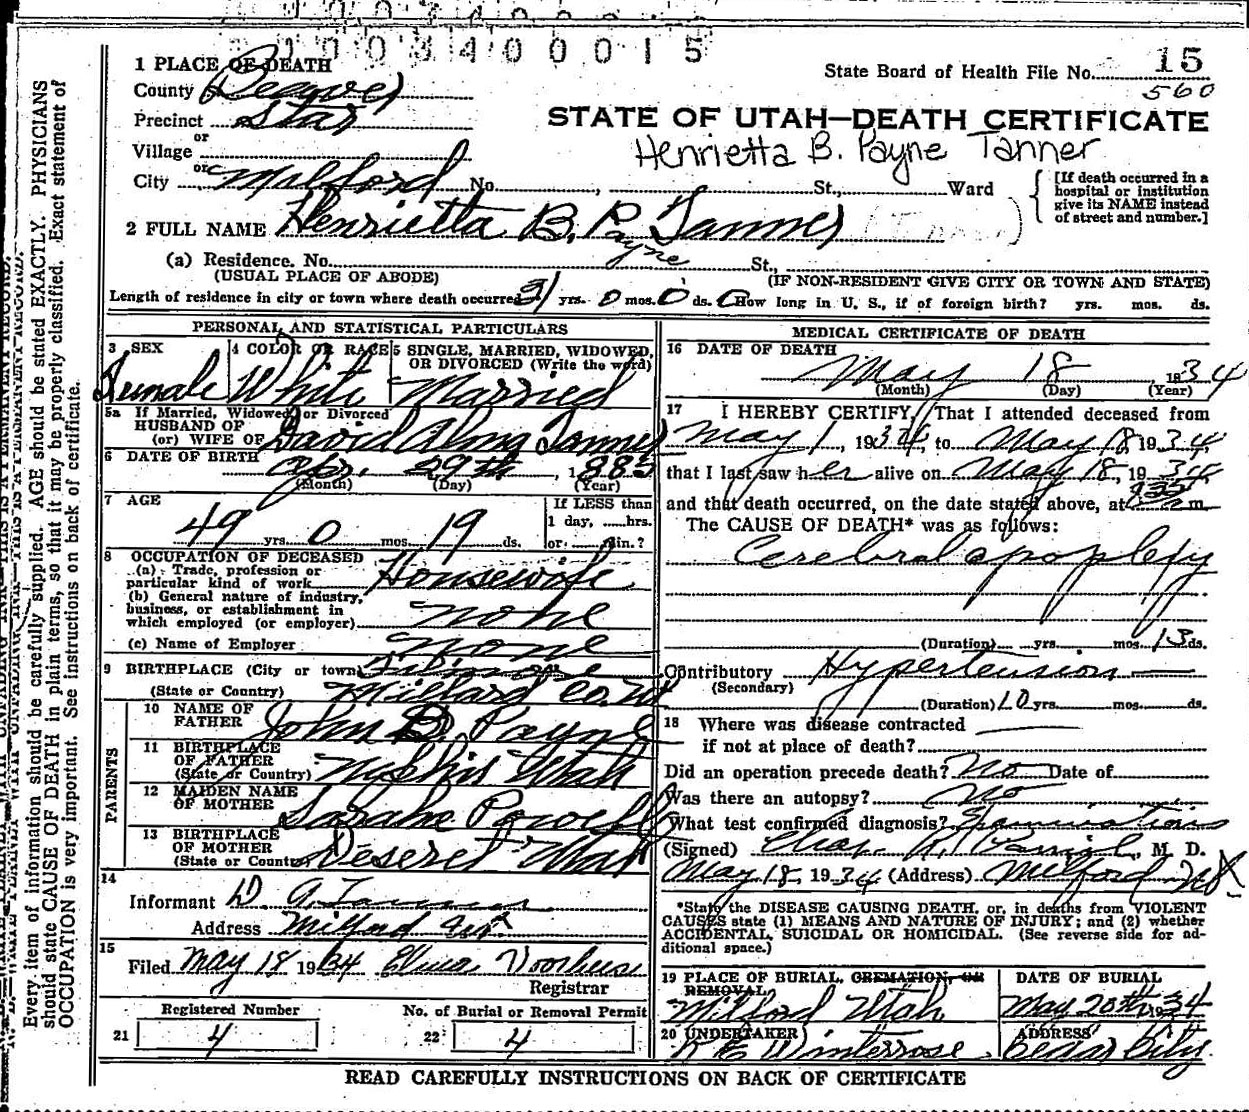 0 0 3 4 0 0 0 1 5
15
State Board of Health File No.
560
1 PLACE OF DEATH
County Beaver
Precinct Star
or
Village
or
City Milford No. , St., Ward
STATE OF UTAH—DEATH CERTIFICATE
Henrietta B. Payne Tanner
[If death occurred in a
hospital or institution
give its NAME instead
of street and number.]
2 FULL NAME Henrietta B. P. Tanner
Payne
(a) Residence. No. St.,
(USUAL PLACE OF ABODE) (IF NON-RESIDENT GIVE CITY OR TOWN AND STATE)
Length of residence in city or town where death occurred 31 yrs. 0 mos. 0 ds. How long in U. S., if of foreign birth? yrs. mos. ds.
PERSONAL AND STATISTICAL PARTICULARS
3 SEX
Female
4 COLOR OR RACE
White
5 SINGLE, MARRIED, WIDOWED,
OR DIVORCED (Write the word)
Married
5a If Married, Widowed or Divorced
HUSBAND OF
(or) WIFE OF David Alma Tanner
6 DATE OF BIRTH
Apr. 29th, 1885
(Month) (Day) (Year)
7 AGE
49 yrs. 0 mos. 19 ds.
If LESS than
1 day, hrs.
or min.?
8 OCCUPATION OF DECEASED
(a) Trade, profession or
particular kind of work Housewife
(b) General nature of industry,
business, or establishment in
which employed (or employer) none
(c) Name of Employer none
9 BIRTHPLACE (City or town)
(State or Country) Millard Co. Ut
PARENTS
10 NAME OF
FATHER John B Payne
11 BIRTHPLACE
OF FATHER
(State or Country) Nephi Utah
12 MAIDEN NAME
OF MOTHER Sarah Powell
13 BIRTHPLACE
OF MOTHER
(State or Country) Deseret Utah
14
Informant D. A. Tanner
Address Milford Ut
15
Filed May 18 1934 Elma Voorhees
Registrar
Registered Number
21 4
No. of Burial or Removal Permit
22 4
MEDICAL CERTIFICATE OF DEATH
16 DATE OF DEATH
May 18 1934
(Month) (Day) (Year)
17 I HEREBY CERTIFY, That I attended deceased from
May 1, 1934, to May 18, 1934,
that I last saw her alive on May 18, 1934
and that death occurred, on the date stated above, at m
The CAUSE OF DEATH* was as follows:
Cerebral apoplexy
(Duration) yrs. mos. 13 ds.
Contributory Hypertension
(Secondary)
(Duration) 10 yrs. mos. ds.
18 Where was disease contracted
if not at place of death?
Did an operation precede death? No Date of
Was there an autopsy? No
What test confirmed diagnosis? Examinations
(Signed) M. D.
May 18, 1934 (Address) Milford Ut
*State the DISEASE CAUSING DEATH, or, in deaths from VIOLENT
CAUSES state (1) MEANS AND NATURE OF INJURY; and (2) whether
ACCIDENTAL, SUICIDAL OR HOMICIDAL. (See reverse side for ad-
ditional space.)
19 PLACE OF BURIAL, CREMATION, OR
REMOVAL
Milford Utah
DATE OF BURIAL
May 20th, 1934
20 UNDERTAKER
Winterrose
ADDRESS
Cedar City
READ CAREFULLY INSTRUCTIONS ON BACK OF CERTIFICATE
Every item of information should be carefully supplied. AGE should be stated EXACTLY. PHYSICIANS
should state CAUSE OF DEATH in plain terms, so that it may be properly classified. Exact statement of
OCCUPATION is very important. See instructions on back of certificate.